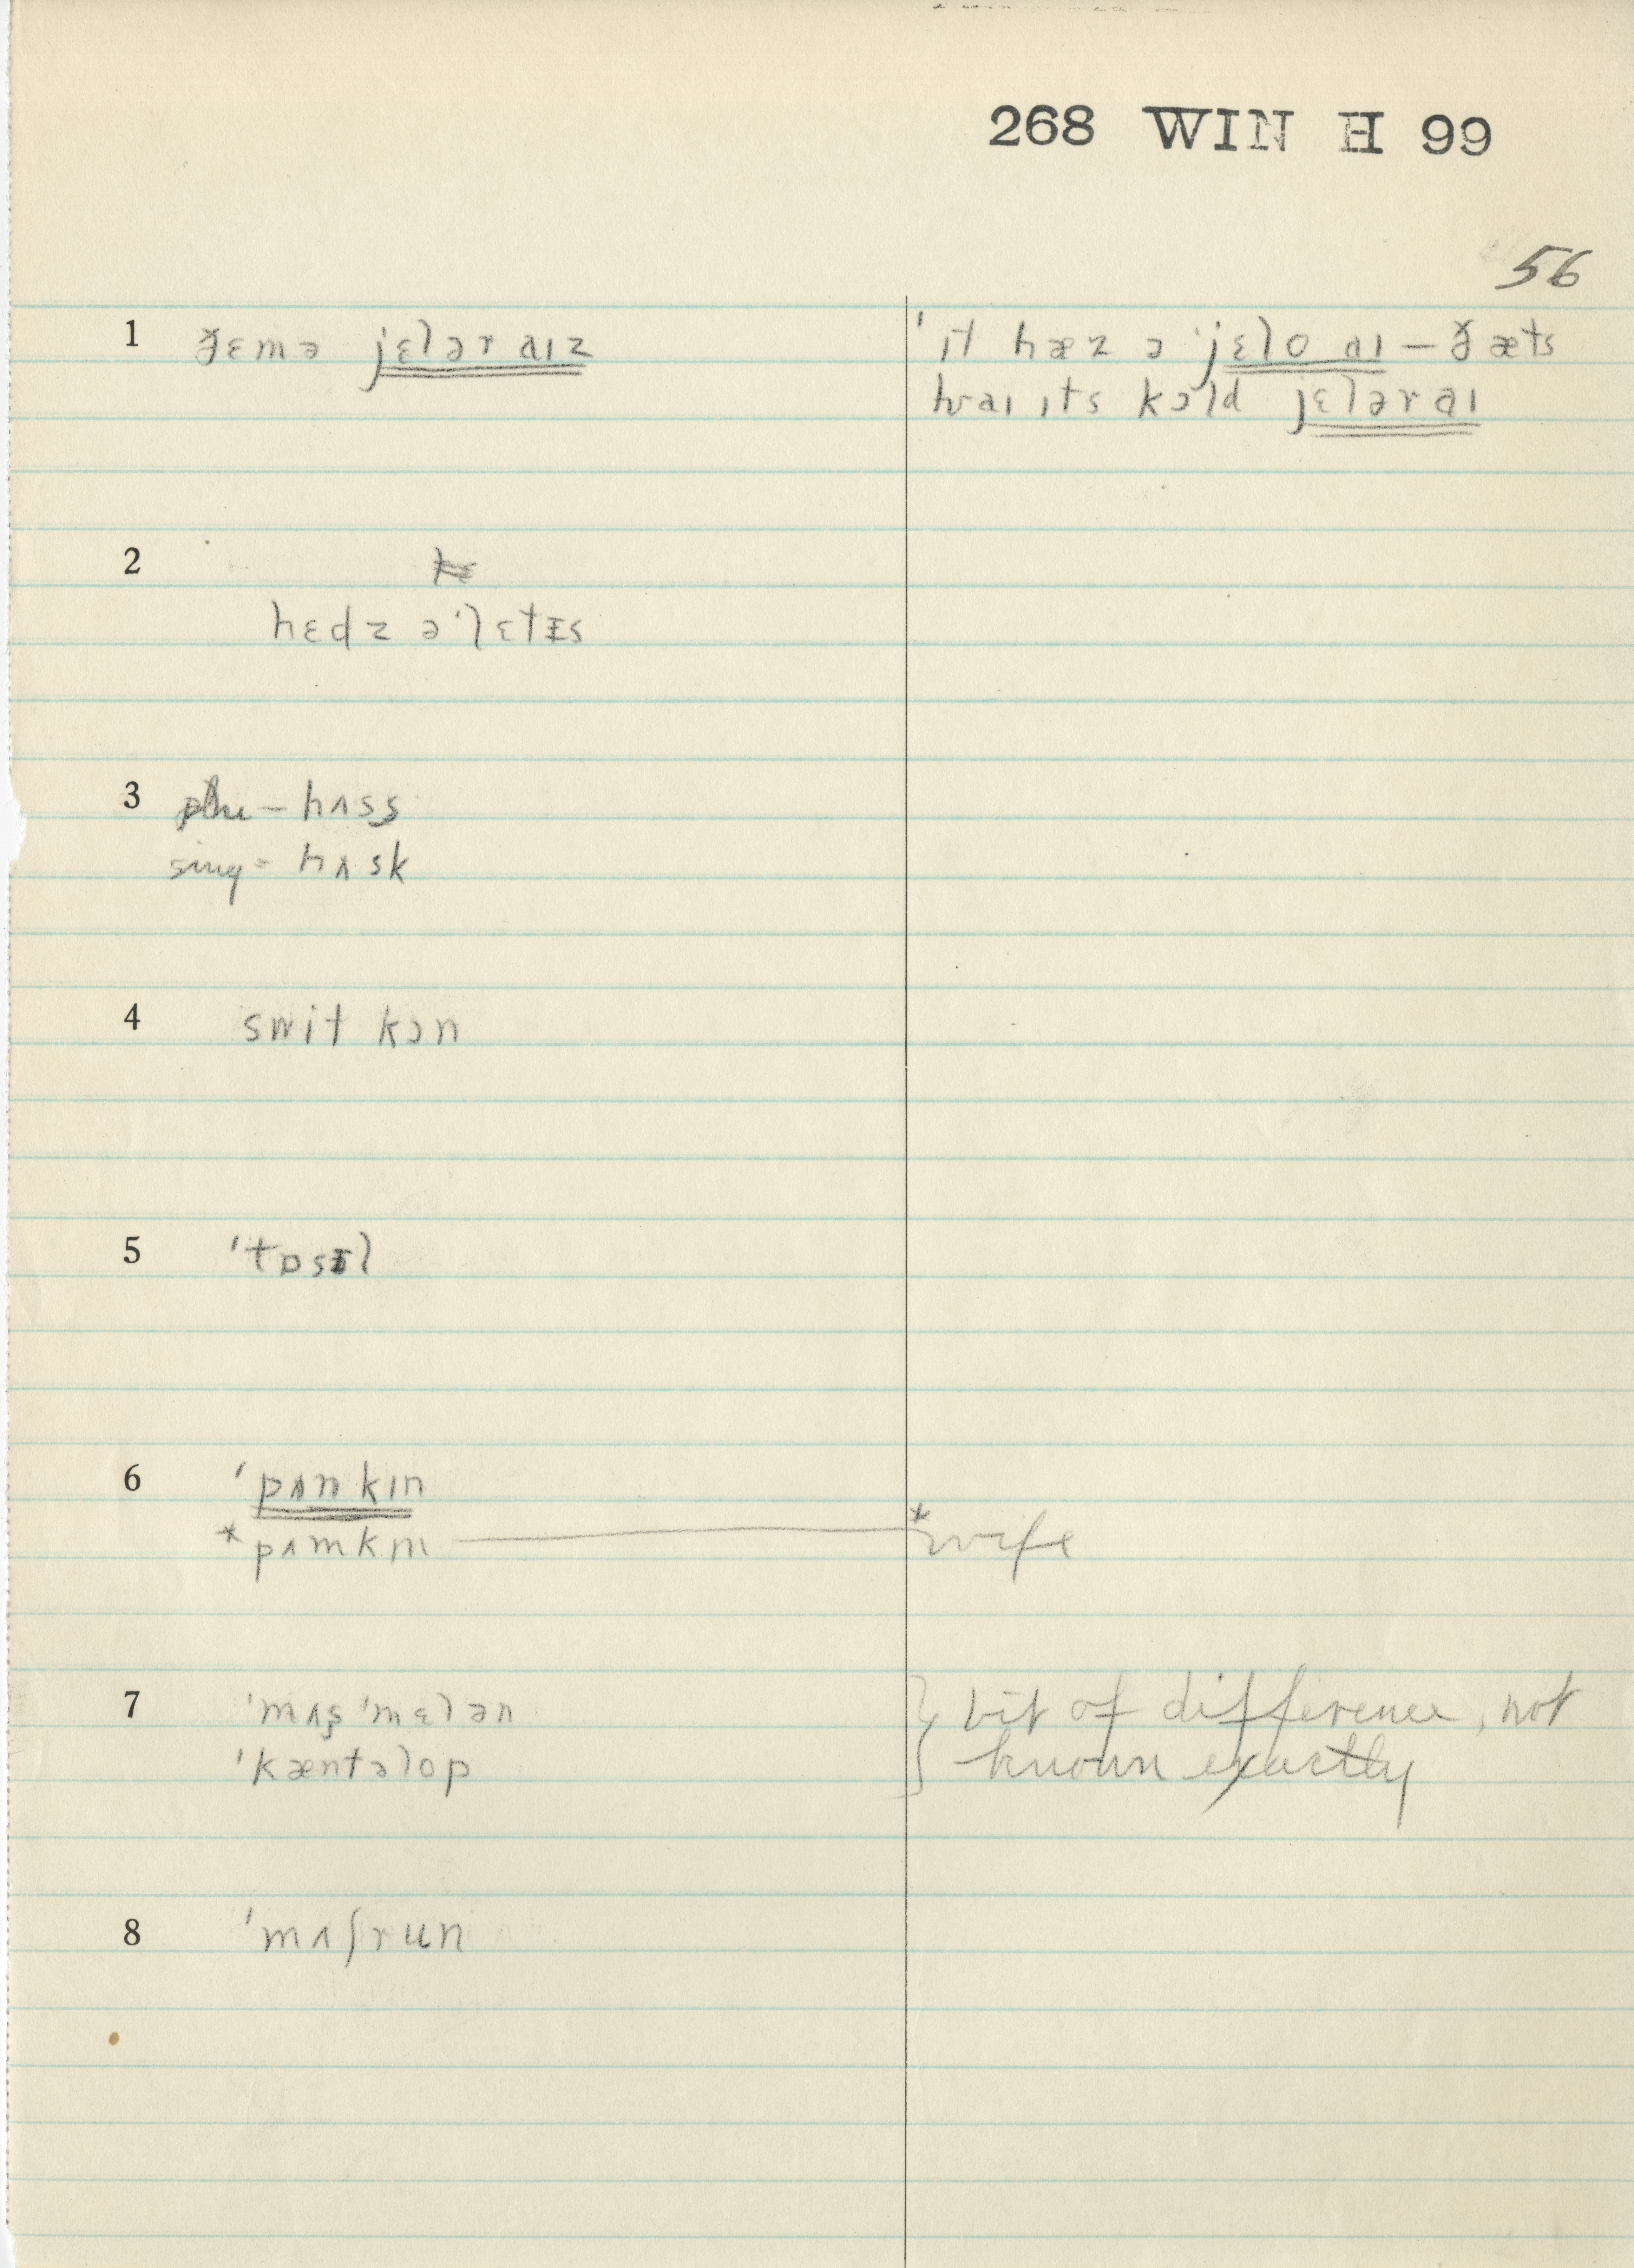 268 WIN H 99
56
1 ɟɛmə jɛlər aɪz
ˈɪt hæz ə ˈjɛlo aɪ — ðæts
hwaɪ ɪts kɔld jɛlər aɪ
2
hɛdz əˈlɛtɪs
3 plu – hʌss
sing – hʌsk
4 swit kɔn
5 ˈtɒsɪl
6 ˈpʌnkɪn
*pʌmkɪn *wife
7 ˈmʌʂ ˈmɛlən } bit of difference, not
ˈkæntəlop known exactly
8 ˈmʌʃrun